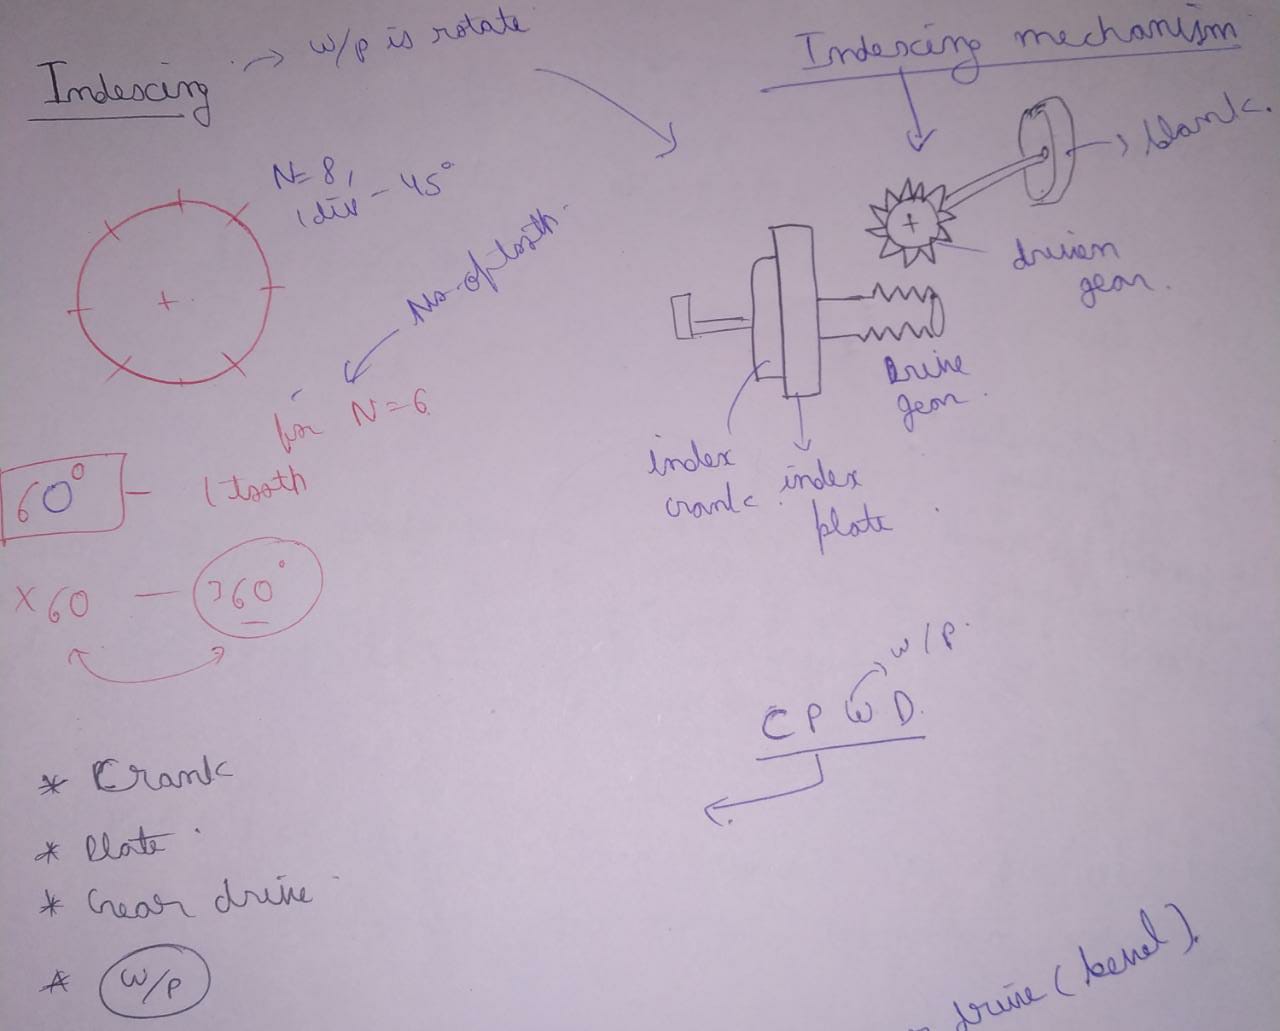 Indexing → w/p is rotate
Indexing mechanism
N=8,
1 div - 45°
No. of tooth.
for N=6
60° - 1 tooth
x60 - 360°
blank.
driven
gear.
Drive
gear.
index
crank.
index
plate
w/p.
C P W D.
* Crank
* Plate
* Gear drive
* w/p
drive (bevel).